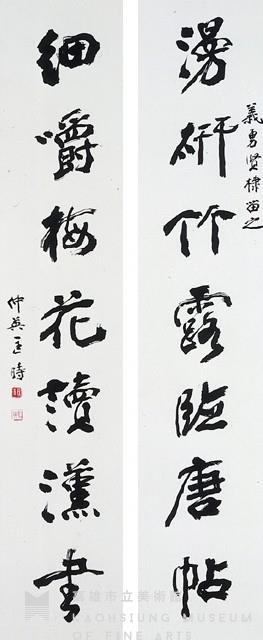 義勇賢棣留之
漫研竹露臨唐帖
細嚼梅花讀漢書
仲英匡時
高雄市立美術館
KAOHSIUNG MUSEUM
OF FINE ARTS